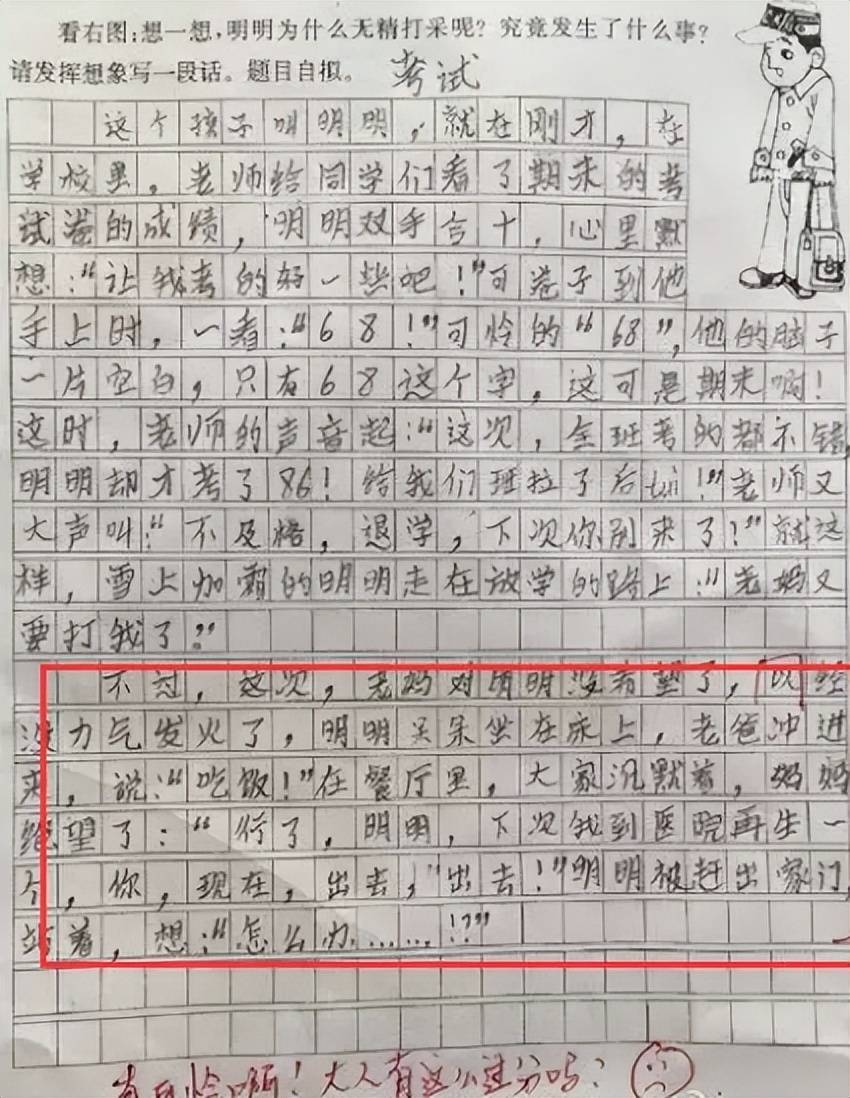 看右图:想一想,明明为什么无精打采呢?究竟发生了什么事?
请发挥想象写一段话。题目自拟。 考试
这个孩子叫明明,就在刚才,在
学校里,老师给同学们看了期末的考
试卷的成绩,明明双手合十,心里默
想:“让我考的好一些吧!”可卷子到他
手上时,一看:“68!”可怜的“68”,他的脑子
一片空白,只有68这个字,这可是期末啊!
这时,老师的声音起:“这次,全班考的都不错,
明明却才考了86!给我们班拉了后tuǐ!”老师又
大声叫:“不及格,退学,下次你别来了!”就这
样,雪上加霜的明明走在放学的路上:“老妈又
要打我了”
不过,这次,老妈对明明没希望了,以经
没力气发火了,明明呆呆坐在床上,老爸冲进
来,说:“吃饭!”在餐厅里,大家沉默着,妈妈
绝望了:“行了,明明,下次我到医院再生一
个,你,现在,出去,“出去!”明明被赶出家门,
站着,想:“怎么办……!?”
有可怜啊!大人有这么过分吗?